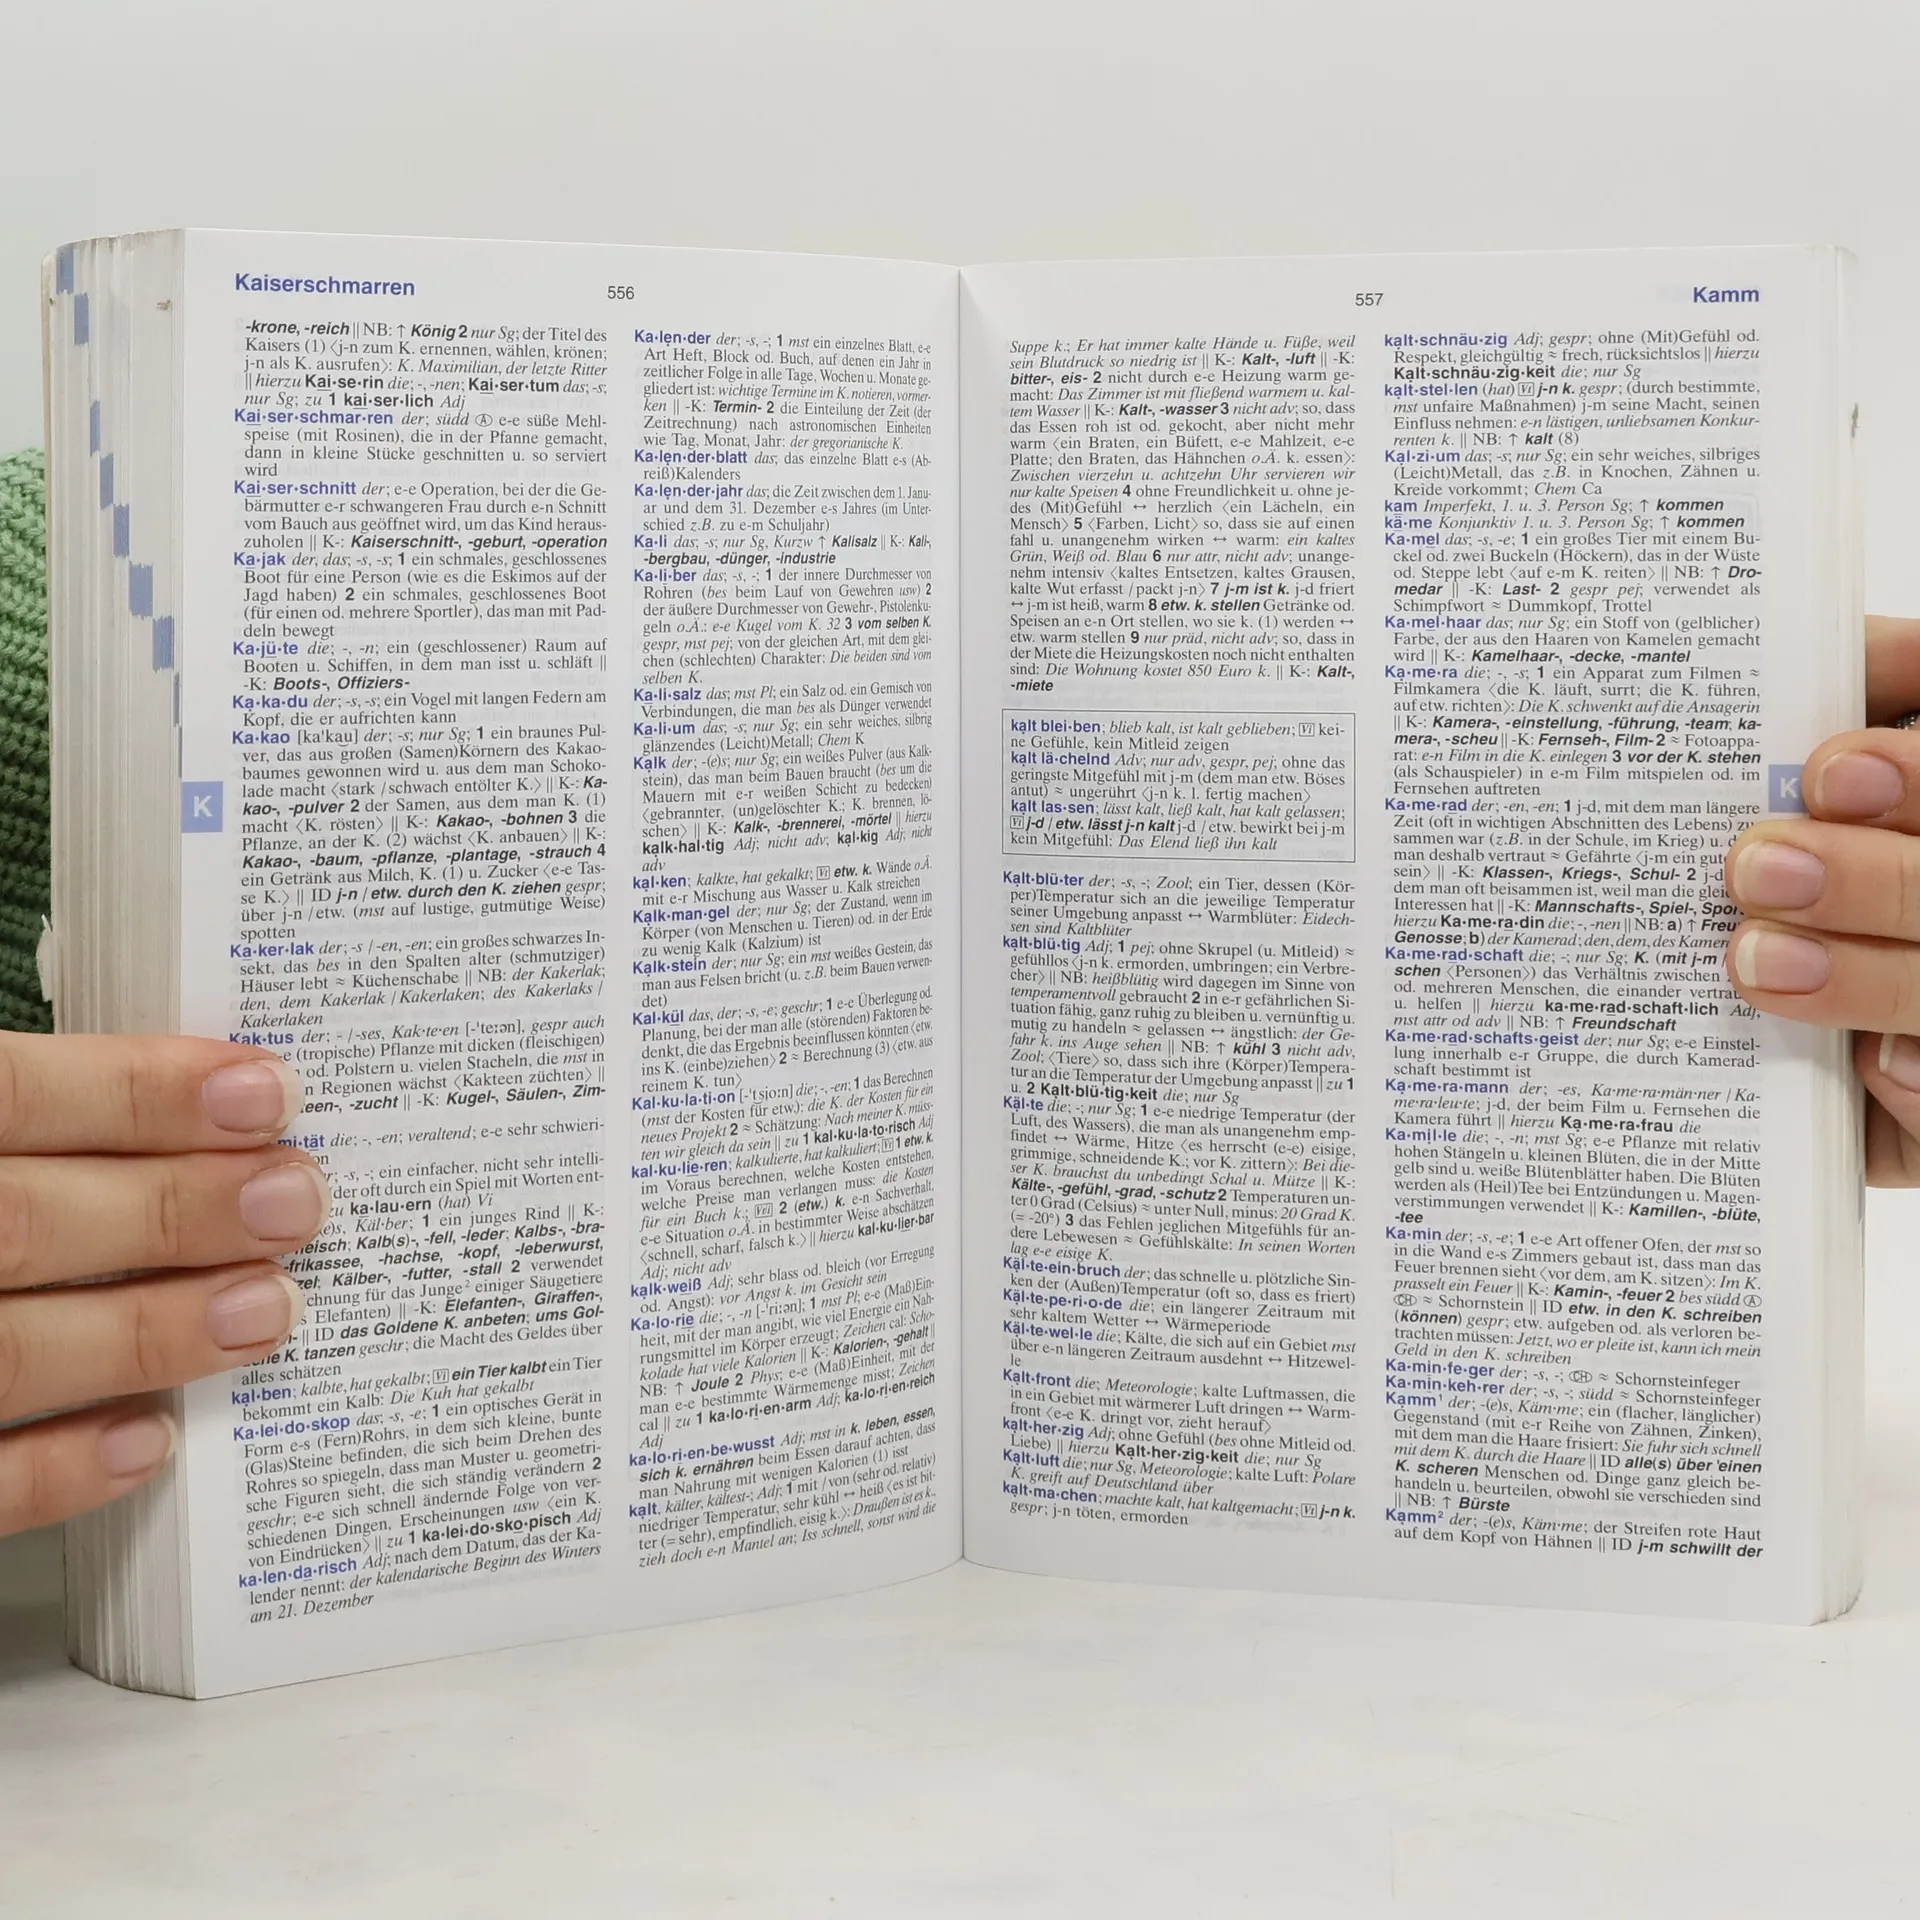 Kaiserschmarren
556
-krone, -reich || NB: ↑ König 2 nur Sg; der Titel des
Kaisers (1) ⟨j-n zum K. ernennen, wählen, krönen;
j-n als K. ausrufen⟩: K. Maximilian, der letzte Ritter
|| hierzu Kai·se·rin die; -, -nen; Kai·ser·tum das; -s;
nur Sg; zu 1 kai·ser·lich Adj
Kai·ser·schmar·ren der; südd Ⓐ e-e süße Mehl-
speise (mit Rosinen), die in der Pfanne gemacht,
dann in kleine Stücke geschnitten u. so serviert
wird
Kai·ser·schnitt der; e-e Operation, bei der die Ge-
bärmutter e-r schwangeren Frau durch e-n Schnitt
vom Bauch aus geöffnet wird, um das Kind heraus-
zuholen || K-: Kaiserschnitt-, -geburt, -operation
Ka·jak der, das; -s, -s; 1 ein schmales, geschlossenes
Boot für eine Person (wie es die Eskimos auf der
Jagd haben) 2 ein schmales, geschlossenes Boot
(für einen od. mehrere Sportler), das man mit Pad-
deln bewegt
Ka·jü·te die; -, -n; ein (geschlossener) Raum auf
Booten u. Schiffen, in dem man isst u. schläft ||
-K: Boots-, Offiziers-
Ka·ka·du der; -s, -s; ein Vogel mit langen Federn am
Kopf, die er aufrichten kann
Ka·kao [ka'kau] der; -s; nur Sg; 1 ein braunes Pul-
ver, das aus großen (Samen)Körnern des Kakao-
baumes gewonnen wird u. aus dem man Schoko-
lade macht ⟨stark / schwach entölter K.⟩ || K-: Ka-
kao-, -pulver 2 der Samen, aus dem man K. (1)
macht ⟨K. rösten⟩ || K-: Kakao-, -bohnen 3 die
Pflanze, an der K. (2) wächst ⟨K. anbauen⟩ || K-:
Kakao-, -baum, -pflanze, -plantage, -strauch 4
ein Getränk aus Milch, K. (1) u. Zucker ⟨e-e Tas-
se K.⟩ || ID j-n / etw. durch den K. ziehen gespr;
über j-n / etw. (mst auf lustige, gutmütige Weise)
spotten
Ka·ker·lak der; -s / -en, -en; ein großes schwarzes In-
sekt, das bes in den Spalten alter (schmutziger)
Häuser lebt ≈ Küchenschabe || NB: der Kakerlak;
den, dem Kakerlak / Kakerlaken; des Kakerlaks /
Kakerlaken
Kak·tus der; - / -ses, Kak·te·en [-'te:ən], gespr auch
-e (tropische) Pflanze mit dicken (fleischigen)
od. Polstern u. vielen Stacheln, die mst in
n Regionen wächst ⟨Kakteen züchten⟩ ||
teen-, -zucht || -K: Kugel-, Säulen-, Zim-
mi·tät die; -, -en; veraltend; e-e sehr schwieri-
on
r; -s, -; ein einfacher, nicht sehr intelli-
der oft durch ein Spiel mit Worten ent-
zu ka·lau·ern (hat) Vi
(e)s, Käl·ber; 1 ein junges Rind || K-:
fleisch; Kalb(s)-, -fell, -leder; Kalbs-, -bra-
-frikassee, -hachse, -kopf, -leberwurst,
zel; Kälber-, -futter, -stall 2 verwendet
chnung für das Junge² einiger Säugetiere
s Elefanten) || -K: Elefanten-, Giraffen-,
|| ID das Goldene K. anbeten; ums Gol-
ne K. tanzen geschr; die Macht des Geldes über
alles schätzen
kal·ben; kalbte, hat gekalbt; Vi ein Tier kalbt ein Tier
bekommt ein Kalb: Die Kuh hat gekalbt
Ka·lei·do·skop das; -s, -e; 1 ein optisches Gerät in
Form e-s (Fern)Rohrs, in dem sich kleine, bunte
(Glas)Steine befinden, die sich beim Drehen des
Rohres so spiegeln, dass man Muster u. geometri-
sche Figuren sieht, die sich ständig verändern 2
geschr; e-e sich schnell ändernde Folge von ver-
schiedenen Dingen, Erscheinungen usw ⟨ein K.
von Eindrücken⟩ || zu 1 ka·lei·do·sko·pisch Adj
ka·len·da·risch Adj; nach dem Datum, das der Ka-
lender nennt: der kalendarische Beginn des Winters
am 21. Dezember
Ka·len·der der; -s, -; 1 mst ein einzelnes Blatt, e-e
Art Heft, Block od. Buch, auf denen ein Jahr in
zeitlicher Folge in alle Tage, Wochen u. Monate ge-
gliedert ist: wichtige Termine im K. notieren, vormer-
ken || -K: Termin- 2 die Einteilung der Zeit (der
Zeitrechnung) nach astronomischen Einheiten
wie Tag, Monat, Jahr: der gregorianische K.
Ka·len·der·blatt das; das einzelne Blatt e-s (Ab-
reiß)Kalenders
Ka·len·der·jahr das; die Zeit zwischen dem 1. Janu-
ar und dem 31. Dezember e-s Jahres (im Unter-
schied z.B. zu e-m Schuljahr)
Ka·li das; -s; nur Sg, Kurzw ↑ Kalisalz || K-: Kali-,
-bergbau, -dünger, -industrie
Ka·li·ber das; -s, -; 1 der innere Durchmesser von
Rohren (bes beim Lauf von Gewehren usw) 2
der äußere Durchmesser von Gewehr-, Pistolenku-
geln o.Ä.: e-e Kugel vom K. 32 3 vom selben K.
gespr, mst pej; von der gleichen Art, mit dem glei-
chen (schlechten) Charakter: Die beiden sind vom
selben K.
Ka·li·salz das; mst Pl; ein Salz od. ein Gemisch von
Verbindungen, die man bes als Dünger verwendet
Ka·li·um das; -s; nur Sg; ein sehr weiches, silbrig
glänzendes (Leicht)Metall; Chem K
Kalk der; -(e)s; nur Sg; ein weißes Pulver (aus Kalk-
stein), das man beim Bauen braucht (bes um die
Mauern mit e-r weißen Schicht zu bedecken)
⟨gebrannter, (un)gelöschter K.; K. brennen, lö-
schen⟩ || K-: Kalk-, -brennerei, -mörtel || hierzu
kalk·hal·tig Adj; nicht adv; kal·kig Adj; nicht
adv
kal·ken; kalkte, hat gekalkt; Vt etw. k. Wände o.Ä.
mit e-r Mischung aus Wasser u. Kalk streichen
Kalk·man·gel der; nur Sg; der Zustand, wenn im
Körper (von Menschen u. Tieren) od. in der Erde
zu wenig Kalk (Kalzium) ist
Kalk·stein der; nur Sg; ein mst weißes Gestein, das
man aus Felsen bricht (u. z.B. beim Bauen verwen-
det)
Kal·kül das, der; -s, -e; geschr; 1 e-e Überlegung od.
Planung, bei der man alle (störenden) Faktoren be-
denkt, die das Ergebnis beeinflussen könnten ⟨etw.
ins K. (einbe)ziehen⟩ 2 ≈ Berechnung (3) ⟨etw. aus
reinem K. tun⟩
Kal·ku·la·ti·on [-'tsjo:n] die; -, -en; 1 das Berechnen
(mst der Kosten für etw.): die K. der Kosten für ein
neues Projekt 2 ≈ Schätzung: Nach meiner K. müss-
ten wir gleich da sein || zu 1 kal·ku·la·to·risch Adj
kal·ku·lie·ren; kalkulierte, hat kalkuliert; Vt 1 etw. k.
im Voraus berechnen, welche Kosten entstehen,
welche Preise man verlangen muss: die Kosten
für ein Buch k.; Vt/i 2 (etw.) k. e-n Sachverhalt,
e-e Situation o.Ä. in bestimmter Weise abschätzen
⟨schnell, scharf, falsch k.⟩ || hierzu kal·ku·lier·bar
Adj; nicht adv
kalk·weiß Adj; sehr blass od. bleich (vor Erregung
od. Angst): vor Angst k. im Gesicht sein
Ka·lo·rie die; -, -n [-'ri:ən]; 1 mst Pl; e-e (Maß)Ein-
heit, mit der man angibt, wie viel Energie ein Nah-
rungsmittel im Körper erzeugt; Zeichen cal: Scho-
kolade hat viele Kalorien || K-: Kalorien-, -gehalt ||
NB: ↑ Joule 2 Phys; e-e (Maß)Einheit, mit der
man e-e bestimmte Wärmemenge misst; Zeichen
cal || zu 1 ka·lo·ri·en·arm Adj; ka·lo·ri·en·reich
Adj
ka·lo·ri·en·be·wusst Adj; mst in k. leben, essen,
sich k. ernähren beim Essen darauf achten, dass
man Nahrung mit wenigen Kalorien (1) isst
kalt, kälter, kältest-; Adj; 1 mit / von (sehr od. relativ)
niedriger Temperatur, sehr kühl ↔ heiß ⟨es ist bit-
ter (= sehr), empfindlich, eisig k.⟩: Draußen ist es k.,
zieh doch e-n Mantel an; Iss schnell, sonst wird die
557
Kamm
Suppe k.; Er hat immer kalte Hände u. Füße, weil
sein Blutdruck so niedrig ist || K-: Kalt-, -luft || -K:
bitter-, eis- 2 nicht durch e-e Heizung warm ge-
macht: Das Zimmer ist mit fließend warmem u. kal-
tem Wasser || K-: Kalt-, -wasser 3 nicht adv; so, dass
das Essen roh ist od. gekocht, aber nicht mehr
warm ⟨ein Braten, ein Büfett, e-e Mahlzeit, e-e
Platte; den Braten, das Hähnchen o.Ä. k. essen⟩:
Zwischen vierzehn u. achtzehn Uhr servieren wir
nur kalte Speisen 4 ohne Freundlichkeit u. ohne je-
des (Mit)Gefühl ↔ herzlich ⟨ein Lächeln, ein
Mensch⟩ 5 ⟨Farben, Licht⟩ so, dass sie auf einen
fahl u. unangenehm wirken ↔ warm: ein kaltes
Grün, Weiß od. Blau 6 nur attr, nicht adv; unange-
nehm intensiv ⟨kaltes Entsetzen, kaltes Grausen,
kalte Wut erfasst / packt j-n⟩ 7 j-m ist k. j-d friert
↔ j-m ist heiß, warm 8 etw. k. stellen Getränke od.
Speisen an e-n Ort stellen, wo sie k. (1) werden ↔
etw. warm stellen 9 nur präd, nicht adv; so, dass in
der Miete die Heizungskosten noch nicht enthalten
sind: Die Wohnung kostet 850 Euro k. || K-: Kalt-,
-miete
kalt blei·ben; blieb kalt, ist kalt geblieben; Vi kei-
ne Gefühle, kein Mitleid zeigen
kalt lä·chelnd Adv; nur adv, gespr, pej; ohne das
geringste Mitgefühl mit j-m (dem man etw. Böses
antut) ≈ ungerührt ⟨j-n k. l. fertig machen⟩
kalt las·sen; lässt kalt, ließ kalt, hat kalt gelassen;
Vi j-d / etw. lässt j-n kalt j-d / etw. bewirkt bei j-m
kein Mitgefühl: Das Elend ließ ihn kalt
Kalt·blü·ter der; -s, -; Zool; ein Tier, dessen (Kör-
per)Temperatur sich an die jeweilige Temperatur
seiner Umgebung anpasst ↔ Warmblüter: Eidech-
sen sind Kaltblüter
kalt·blü·tig Adj; 1 pej; ohne Skrupel (u. Mitleid) ≈
gefühllos ⟨j-n k. ermorden, umbringen; ein Verbre-
cher⟩ || NB: heißblütig wird dagegen im Sinne von
temperamentvoll gebraucht 2 in e-r gefährlichen Si-
tuation fähig, ganz ruhig zu bleiben u. vernünftig u.
mutig zu handeln ≈ gelassen ↔ ängstlich: der Ge-
fahr k. ins Auge sehen || NB: ↑ kühl 3 nicht adv,
Zool; ⟨Tiere⟩ so, dass sich ihre (Körper)Tempera-
tur an die Temperatur der Umgebung anpasst || zu 1
u. 2 Kalt·blü·tig·keit die; nur Sg
Käl·te die; -; nur Sg; 1 e-e niedrige Temperatur (der
Luft, des Wassers), die man als unangenehm emp-
findet ↔ Wärme, Hitze ⟨es herrscht (e-e) eisige,
grimmige, schneidende K.; vor K. zittern⟩: Bei die-
ser K. brauchst du unbedingt Schal u. Mütze || K-:
Kälte-, -gefühl, -grad, -schutz 2 Temperaturen un-
ter 0 Grad (Celsius) ≈ unter Null, minus: 20 Grad K.
(= -20°) 3 das Fehlen jeglichen Mitgefühls für an-
dere Lebewesen ≈ Gefühlskälte: In seinen Worten
lag e-e eisige K.
Käl·te·ein·bruch der; das schnelle u. plötzliche Sin-
ken der (Außen)Temperatur (oft so, dass es friert)
Käl·te·pe·ri·o·de die; ein längerer Zeitraum mit
sehr kaltem Wetter ↔ Wärmeperiode
Käl·te·wel·le die; Kälte, die sich auf ein Gebiet mst
über e-n längeren Zeitraum ausdehnt ↔ Hitzewel-
le
Kalt·front die; Meteorologie; kalte Luftmassen, die
in ein Gebiet mit wärmerer Luft dringen ↔ Warm-
front ⟨e-e K. dringt vor, zieht herauf⟩
kalt·her·zig Adj; ohne Gefühl (bes ohne Mitleid od.
Liebe) || hierzu Kalt·her·zig·keit die; nur Sg
Kalt·luft die; nur Sg, Meteorologie; kalte Luft: Polare
K. greift auf Deutschland über
kalt·ma·chen; machte kalt, hat kaltgemacht; Vt j-n k.
gespr; j-n töten, ermorden
kalt·schnäu·zig Adj; gespr; ohne (Mit)Gefühl od.
Respekt, gleichgültig ≈ frech, rücksichtslos || hierzu
Kalt·schnäu·zig·keit die; nur Sg
kalt·stel·len (hat) Vt j-n k. gespr; (durch bestimmte,
mst unfaire Maßnahmen) j-m seine Macht, seinen
Einfluss nehmen: e-n lästigen, unliebsamen Konkur-
renten k. || NB: ↑ kalt (8)
Kal·zi·um das; -s; nur Sg; ein sehr weiches, silbriges
(Leicht)Metall, das z.B. in Knochen, Zähnen u.
Kreide vorkommt; Chem Ca
kam Imperfekt, 1. u. 3. Person Sg; ↑ kommen
kä·me Konjunktiv 1. u. 3. Person Sg; ↑ kommen
Ka·mel das; -s, -e; 1 ein großes Tier mit einem Bu-
ckel od. zwei Buckeln (Höckern), das in der Wüste
od. Steppe lebt ⟨auf e-m K. reiten⟩ || NB: ↑ Dro-
medar || -K: Last- 2 gespr pej; verwendet als
Schimpfwort ≈ Dummkopf, Trottel
Ka·mel·haar das; nur Sg; ein Stoff von (gelblicher)
Farbe, der aus den Haaren von Kamelen gemacht
wird || K-: Kamelhaar-, -decke, -mantel
Ka·me·ra die; -, -s; 1 ein Apparat zum Filmen ≈
Filmkamera ⟨die K. läuft, surrt; die K. führen,
auf etw. richten⟩: Die K. schwenkt auf die Ansagerin
|| K-: Kamera-, -einstellung, -führung, -team; ka-
mera-, -scheu || -K: Fernseh-, Film- 2 ≈ Fotoappa-
rat: e-n Film in die K. einlegen 3 vor der K. stehen
(als Schauspieler) in e-m Film mitspielen od. im
Fernsehen auftreten
Ka·me·rad der; -en, -en; 1 j-d, mit dem man längere
Zeit (oft in wichtigen Abschnitten des Lebens) zu
sammen war (z.B. in der Schule, im Krieg) u.
man deshalb vertraut ≈ Gefährte ⟨j-m ein gute
sein⟩ || -K: Klassen-, Kriegs-, Schul- 2 j-d
dem man oft beisammen ist, weil man die glei
Interessen hat || -K: Mannschafts-, Spiel-, Spor
hierzu Ka·me·ra·din die; -, -nen || NB: a) ↑ Freu
Genosse; b) der Kamerad; den, dem, des Kamer
Ka·me·rad·schaft die; -; nur Sg; K. (mit j-m /
schen ⟨Personen⟩) das Verhältnis zwischen
od. mehreren Menschen, die einander vertrau
u. helfen || hierzu ka·me·rad·schaft·lich Adj,
mst attr od adv || NB: ↑ Freundschaft
Ka·me·rad·schafts·geist der; nur Sg; e-e Einstel-
lung innerhalb e-r Gruppe, die durch Kamerad-
schaft bestimmt ist
Ka·me·ra·mann der; -es, Ka·me·ra·män·ner / Ka-
me·ra·leu·te; j-d, der beim Film u. Fernsehen die
Kamera führt || hierzu Ka·me·ra·frau die
Ka·mil·le die; -, -n; mst Sg; e-e Pflanze mit relativ
hohen Stängeln u. kleinen Blüten, die in der Mitte
gelb sind u. weiße Blütenblätter haben. Die Blüten
werden als (Heil)Tee bei Entzündungen u. Magen-
verstimmungen verwendet || K-: Kamillen-, -blüte,
-tee
Ka·min der; -s, -e; 1 e-e Art offener Ofen, der mst so
in die Wand e-s Zimmers gebaut ist, dass man das
Feuer brennen sieht ⟨vor dem, am K. sitzen⟩: Im K.
prasselt ein Feuer || K-: Kamin-, -feuer 2 bes südd Ⓐ
CH ≈ Schornstein || ID etw. in den K. schreiben
(können) gespr; etw. aufgeben od. als verloren be-
trachten müssen: Jetzt, wo er pleite ist, kann ich mein
Geld in den K. schreiben
Ka·min·fe·ger der; -s, -; CH ≈ Schornsteinfeger
Ka·min·keh·rer der; -s, -; südd ≈ Schornsteinfeger
Kamm¹ der; -(e)s, Käm·me; ein (flacher, länglicher)
Gegenstand (mit e-r Reihe von Zähnen, Zinken),
mit dem man die Haare frisiert: Sie fuhr sich schnell
mit dem K. durch die Haare || ID alle(s) über 'einen
K. scheren Menschen od. Dinge ganz gleich be-
handeln u. beurteilen, obwohl sie verschieden sind
|| NB: ↑ Bürste
Kamm² der; -(e)s, Käm·me; der Streifen rote Haut
auf dem Kopf von Hähnen || ID j-m schwillt der
K
K